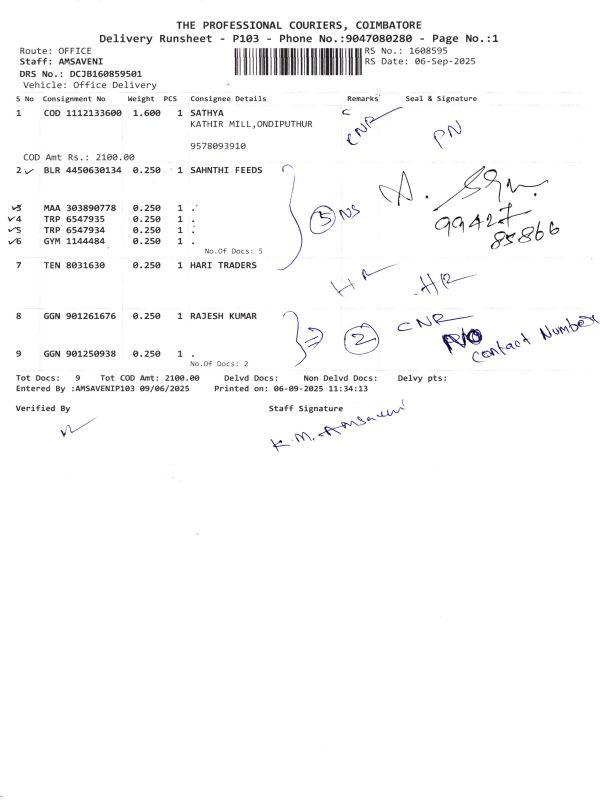 THE PROFESSIONAL COURIERS, COIMBATORE
Delivery Runsheet - P103 - Phone No.:9047080280 - Page No.:1
Route: OFFICE RS No.: 1608595
Staff: AMSAVENI RS Date: 06-Sep-2025
DRS No.: DCJB160859501
Vehicle: Office Delivery
S No Consignment No Weight PCS Consignee Details Remarks Seal & Signature
1 COD 1112133600 1.600 1 SATHYA CNR PN
KATHIR MILL,ONDIPUTHUR
9578093910
COD Amt Rs.: 2100.00
2 BLR 4450630134 0.250 1 SAHNTHI FEEDS
3 MAA 303890778 0.250 1 . 5 NS 99427
4 TRP 6547935 0.250 1 . 85866
5 TRP 6547934 0.250 1 .
6 GYM 1144484 0.250 1 .
No.Of Docs: 5
7 TEN 8031630 0.250 1 HARI TRADERS
8 GGN 901261676 0.250 1 RAJESH KUMAR 2 CNR
NO Contact Number
9 GGN 901250938 0.250 1 .
No.Of Docs: 2
Tot Docs: 9 Tot COD Amt: 2100.00 Delvd Docs: Non Delvd Docs: Delvy pts:
Entered By :AMSAVENIP103 09/06/2025 Printed on: 06-09-2025 11:34:13
Verified By Staff Signature
K.M. Amsaveni